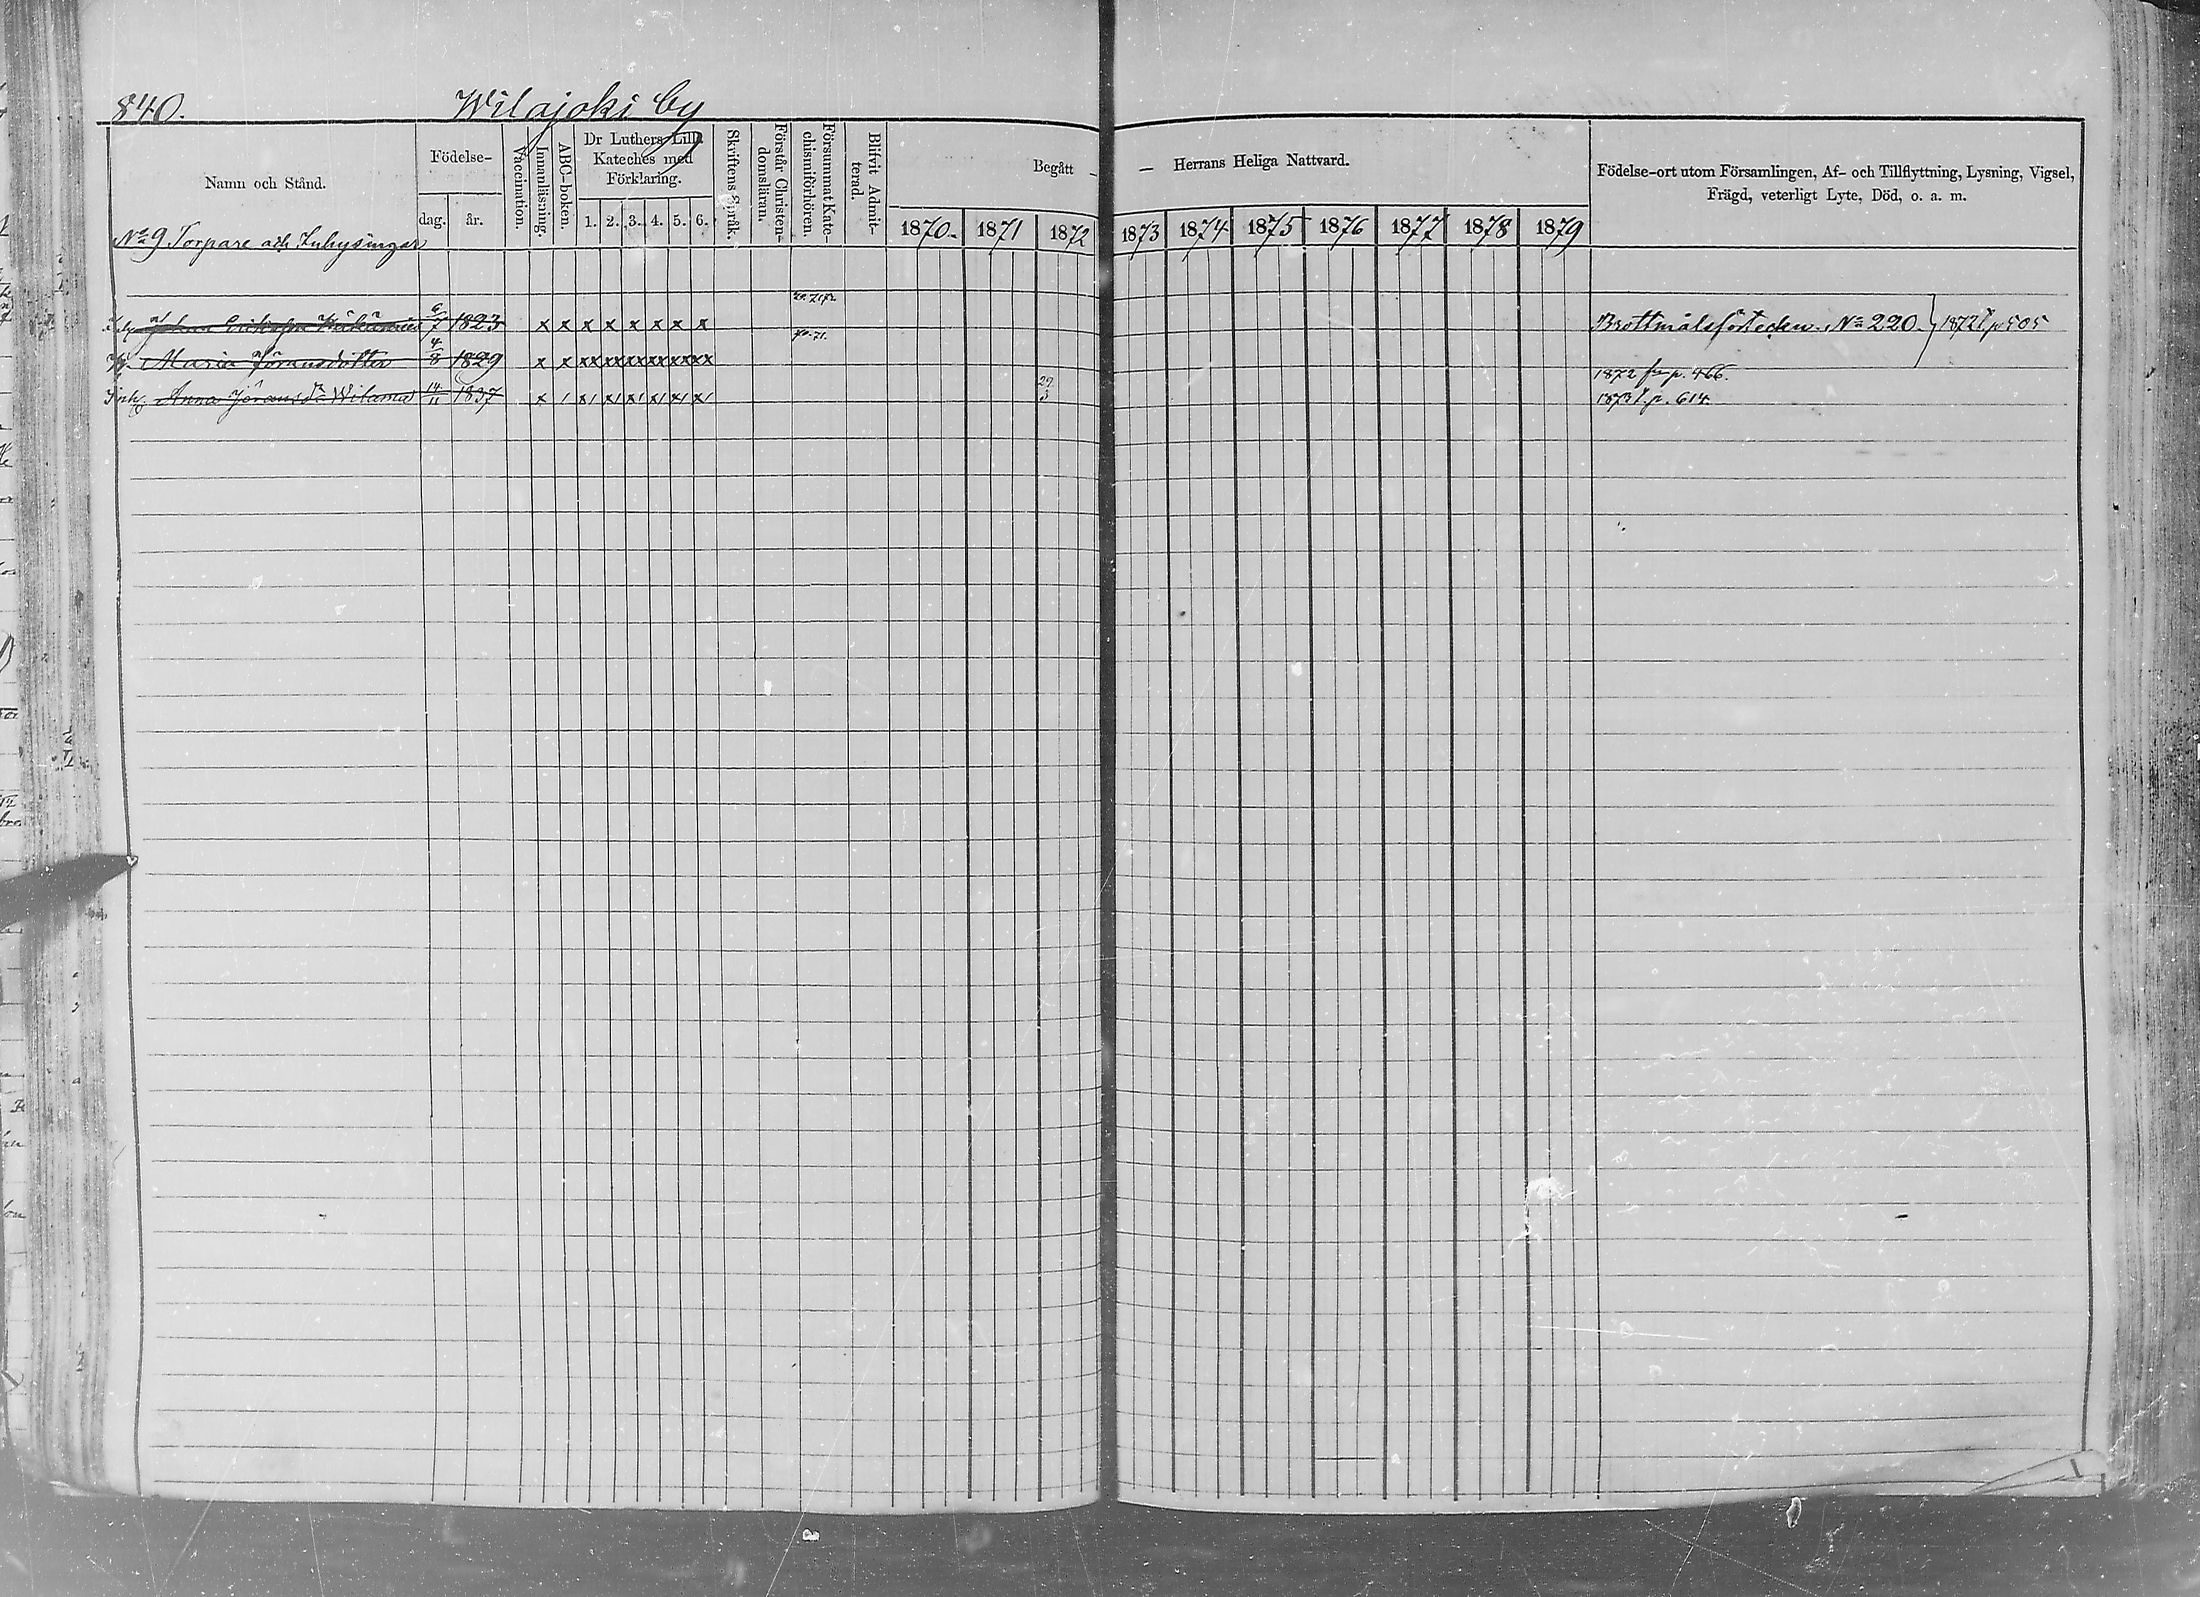 840. Wilajoki by
Namn och Stånd.
Födelse-
dag. år.
Vaccination.
Innanläsning.
ABC-boken.
Dr Luthers Lilla
Kateches med
Förklaring.
1. 2. 3. 4. 5. 6.
Skriftens Språk.
Förstår Christen-
domsläran.
Försummat Kate-
chismiförhören.
Blifvit Admit-
terad.
Begått — — Herrans Heliga Nattvard.
1870. 1871 1872 1873 1874 1875 1876 1877 1878 1879
Födelse-ort utom Församlingen, Af- och Tillflyttning, Lysning, Vigsel,
Frägd, veterligt Lyte, Död, o. a. m.
No 9 Torpare och Inhysingar
Johan Eriksson 6/7 1823 x x x x x x x x Brottmålsförteckn. No 220. 1872 t. p 505
70. 71.
Maria Göransdotter 4/8 1829 x x xx xx xx xx xx xx
1872 fr. p. 466.
Anna Göransdr Wilama 14/11 1837 x 29/3 1873 t. p. 614